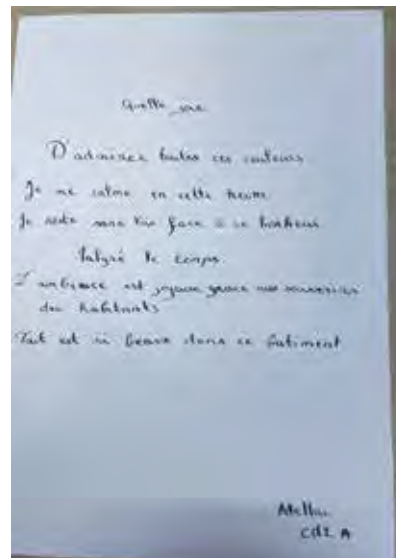 Quelle joie
D'admirer toutes ces couleurs
Je me calme en cette heure
Je reste sans voix face à ce bonheur
Malgré le temps
L'ambiance est joyeuse grace aux souvenirs
des habitants
Tout est si beau dans ce batiment
CdL A